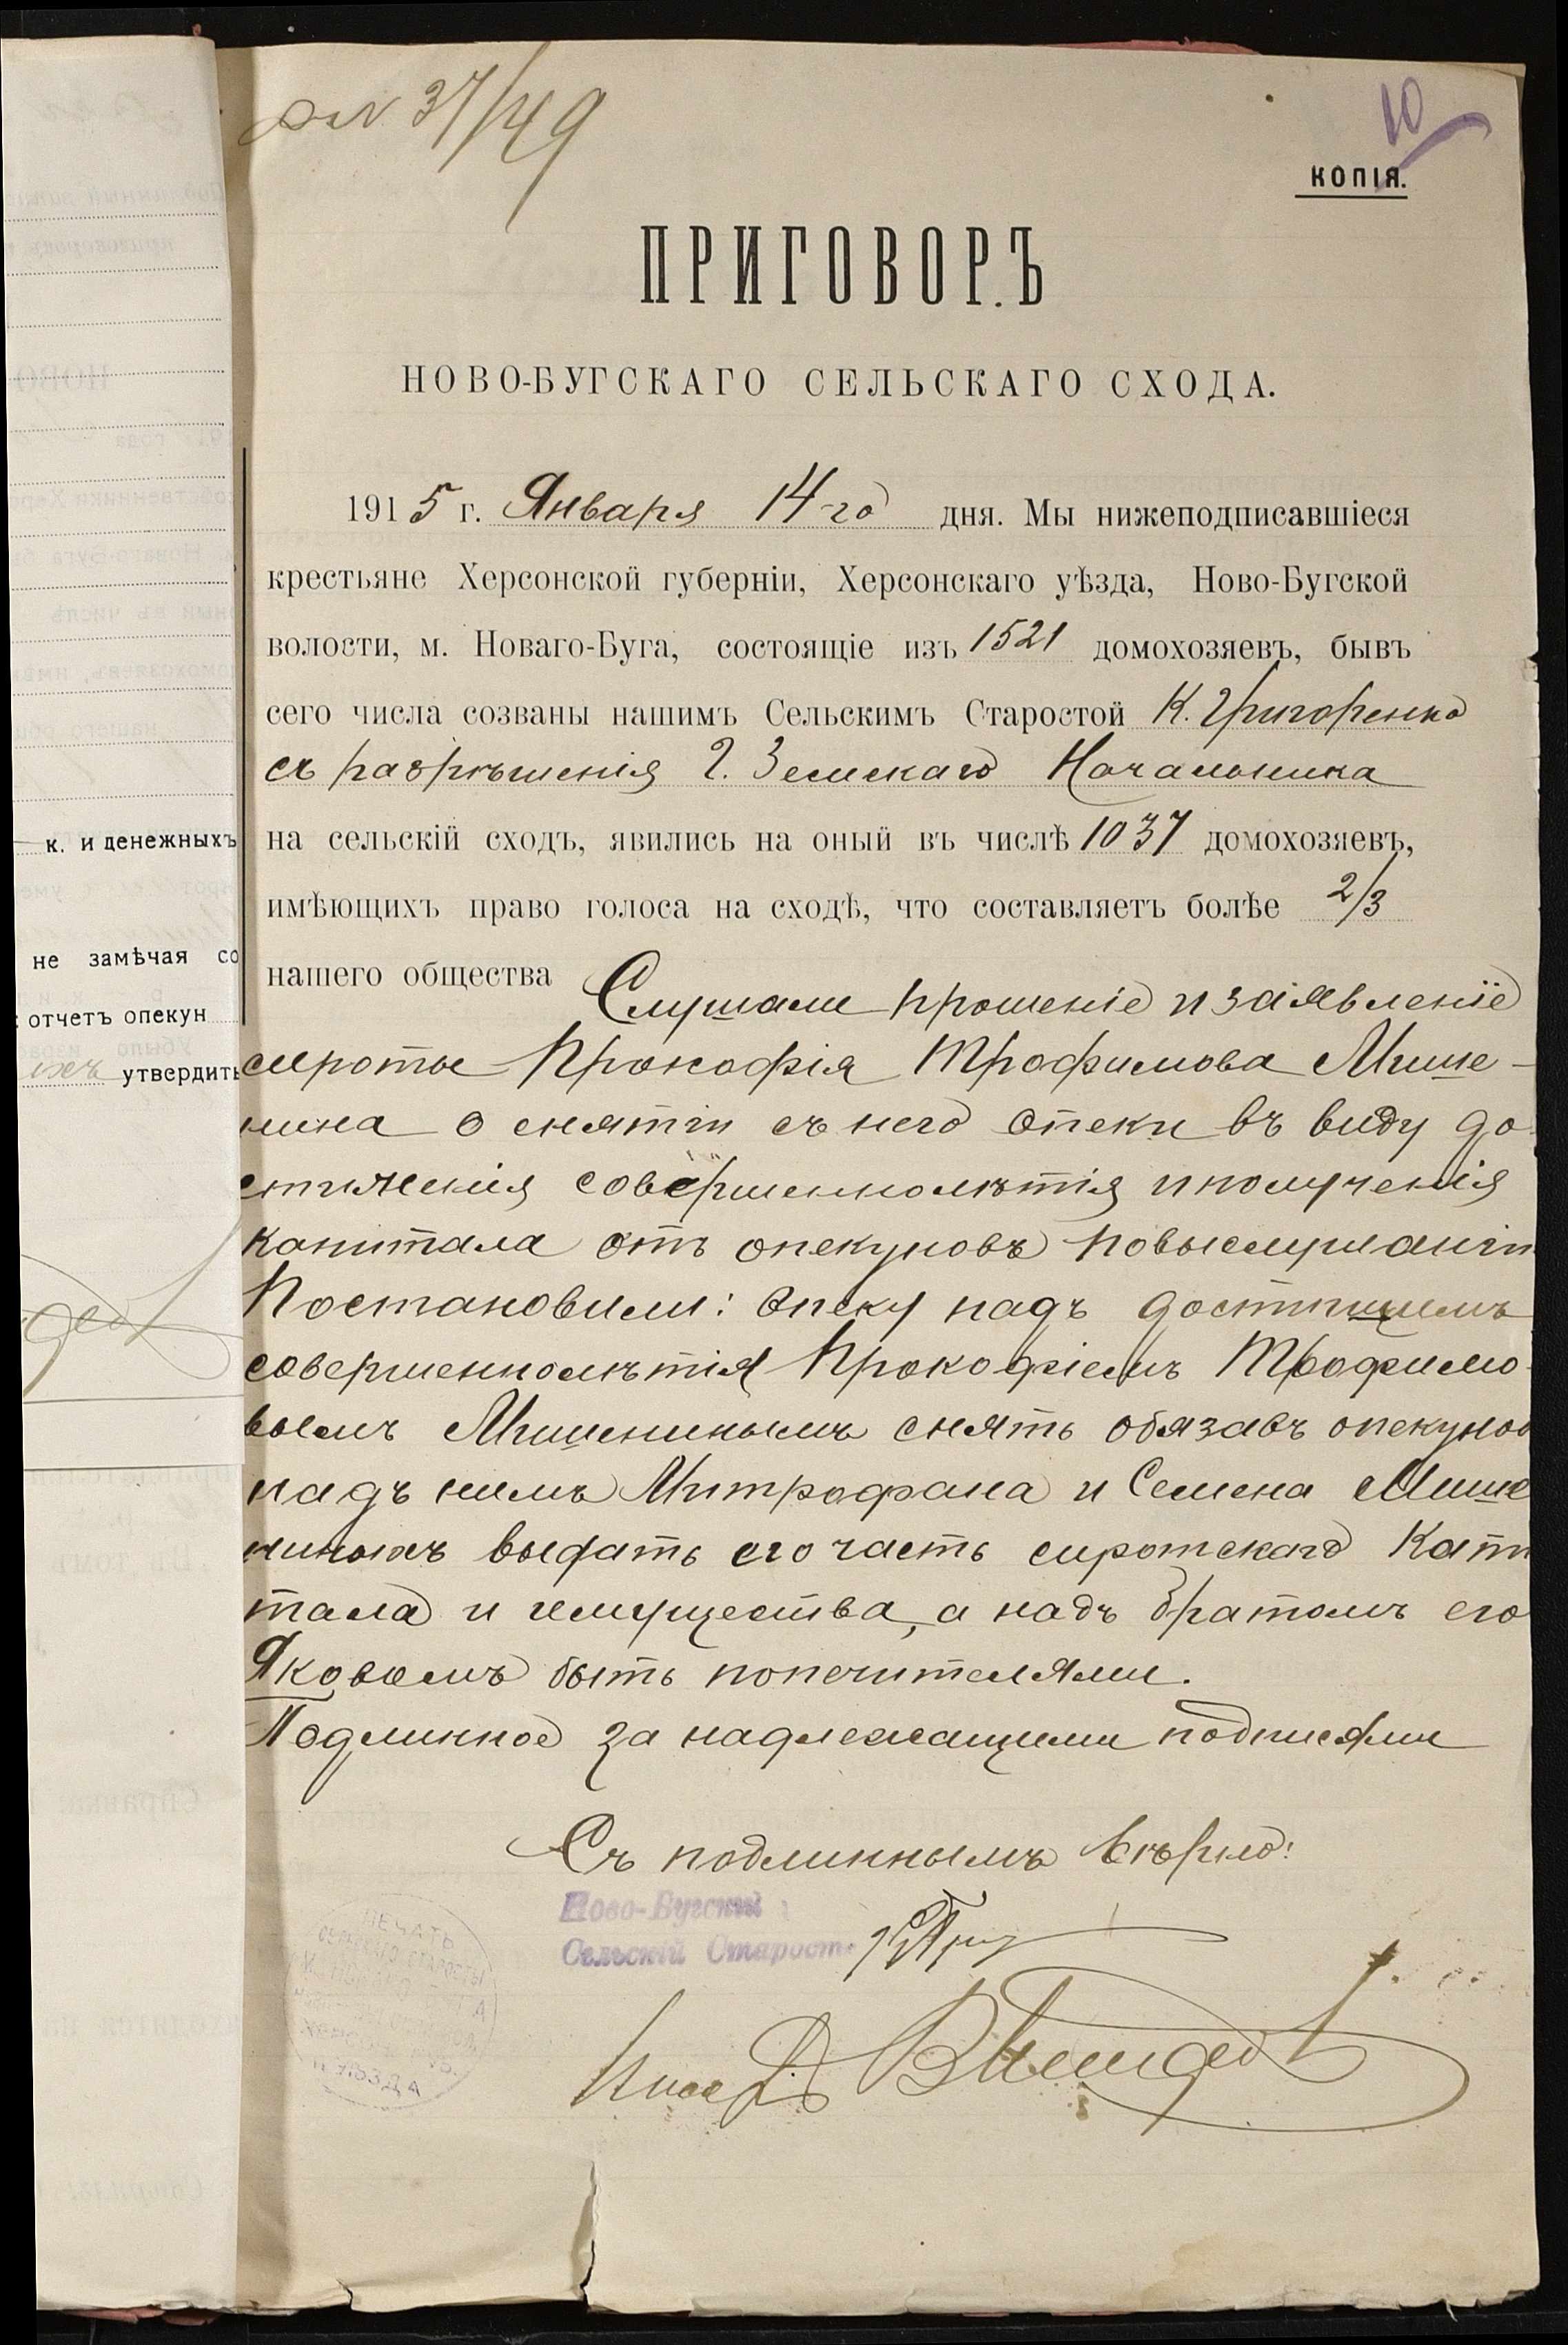 № 37/49
10
КОПІЯ.
ПРИГОВОРЪ
НОВО-БУГСКАГО СЕЛЬСКАГО СХОДА.
1915 г. Января 14-го дня. Мы нижеподписавшіеся
крестьяне Херсонской губерніи, Херсонскаго уѣзда, Ново-Бугской
волости, м. Новаго-Буга, состоящіе изъ 1521 домохозяевъ, бывъ
сего числа созваны нашимъ Сельскимъ Старостой К. Григоренко
съ разрѣшенія Г. Земскаго Начальника
на сельскій сходъ, явились на оный въ числѣ 1037 домохозяевъ,
имѣющихъ право голоса на сходѣ, что составляетъ болѣе 2/3
нашего общества Слушали прошеніе и заявленіе
сироты Прокофія Трофимова Мише-
нина о снятіи съ него опеки въ виду до
стиженія совершеннолѣтія и полученія
капитала отъ опекуновъ по выслушаніи
Постановили: опеку надъ достигшимъ
совершеннолѣтія Прокофіемъ Трофимо-
вымъ Мишенинымъ снять обязавъ опекунов
надъ нимъ Митрофана и Семена Мише
ниныхъ выдать его часть сиротскаго Капи
тала и имущества, а надъ братомъ его
Яковомъ быть попечителями.
Подлинное за надлежащими подписями
Съ подлиннымъ вѣрно:
Ново-Бугскій
Сельскій Староста
ПЕЧАТЬ
СЕЛЬСКАГО СТАРОСТЫ
УѢЗДА
к. и денежныхъ
не замѣчая со
отчетъ опекун
ихъ утвердить